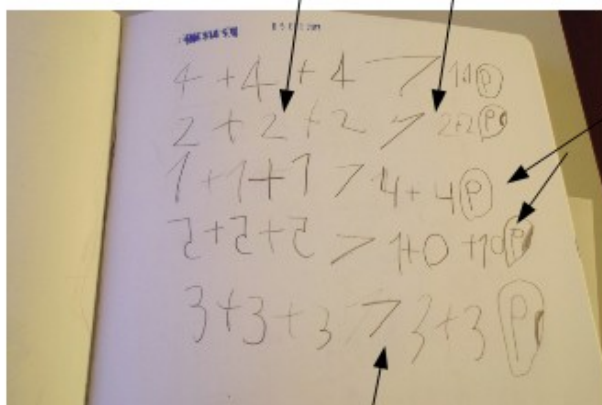 4 + 4 + 4 > 11 Ⓟ
2 + 2 + 2 > 2+2 Ⓟ
1 + 1 + 1 > 4 + 4 Ⓟ
2 + 2 + 2 > 1+0 +10 Ⓟ
3 + 3 + 3 > 3 + 3 Ⓟ